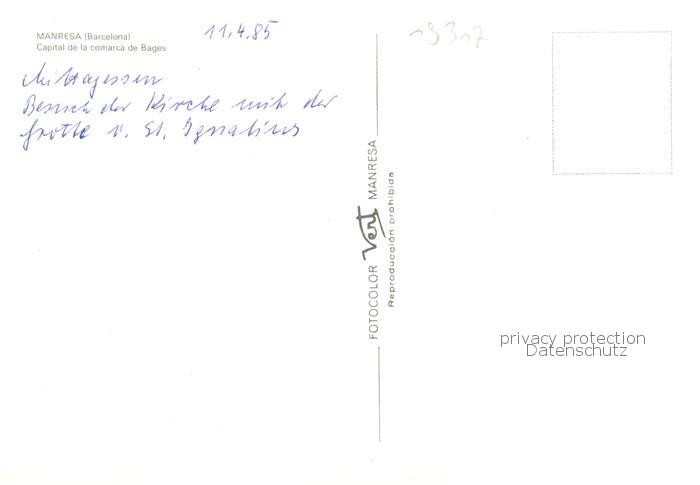 MANRESA (Barcelona)
Capital de la comarca de Bages
11.4.85
Mittagessen
Besuch der Kirche mit der
Grotte v. St. Ignatius
FOTOCOLOR Vert MANRESA
Reproducción prohibida
19317
privacy protection
Datenschutz